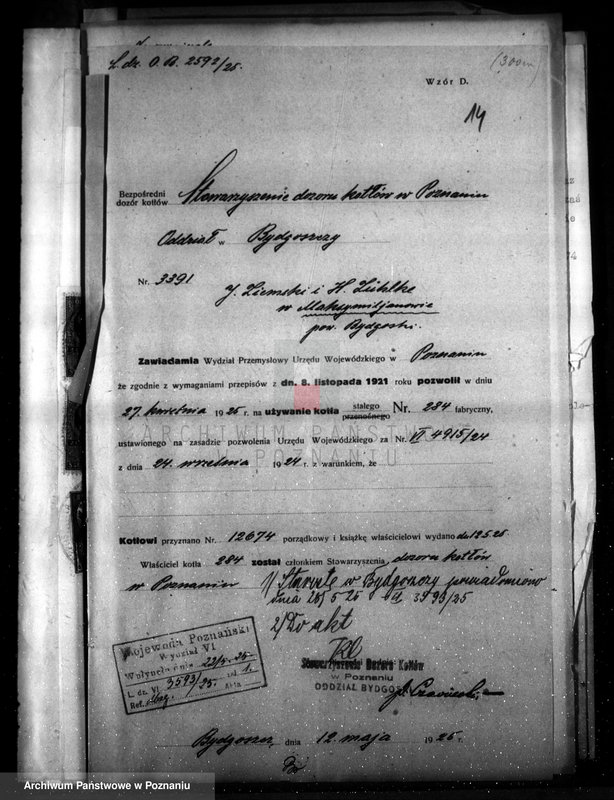 L. dz. O. B. 2592/25.
(300m)
Wzór D.
14
Bezpośredni
dozór kotłów Stowarzyszenie dozoru kotłów w Poznaniu
Oddział w Bydgoszczy
Nr. 3391
J. Ziemski i H. Zühlke
w Maksymiljanowie
pow. Bydgoski.
Zawiadamia Wydział Przemysłowy Urzędu Wojewódzkiego w Poznaniu
że zgodnie z wymaganiami przepisów z dn. 8. listopada 1921 roku pozwolił w dniu
27. kwietnia 1925 r. na używanie kotła stałego przenośnego Nr. 284 fabryczny,
ustawionego na zasadzie pozwolenia Urzędu Wojewódzkiego za Nr. VI 4915/24
z dnia 24. września 1924 r. z warunkiem, że
ARCHIWUM PAŃSTWOWE
POZNANIU
Kotłowi przyznano Nr. 12674 porządkowy i książkę właścicielowi wydano do 12.5.25
Właściciel kotła 284 został członkiem Stowarzyszenia dozoru kotłów
w Poznaniu
1/ Starostę w Bydgoszczy powiadomiono
dnia 28/5 25 3593/25
2/ Do akt
Wojewoda Poznański
Wydział VI
Wpłynęło dnia 22/5. 25
L. dz. VI 3593/25 zał. 1.
Ref. Akta
Stowarzyszenie Dozoru Kotłów
w Poznaniu
ODDZIAŁ BYDGO
Bydgoszcz, dnia 12. maja 1925 r.
Archiwum Państwowe w Poznaniu